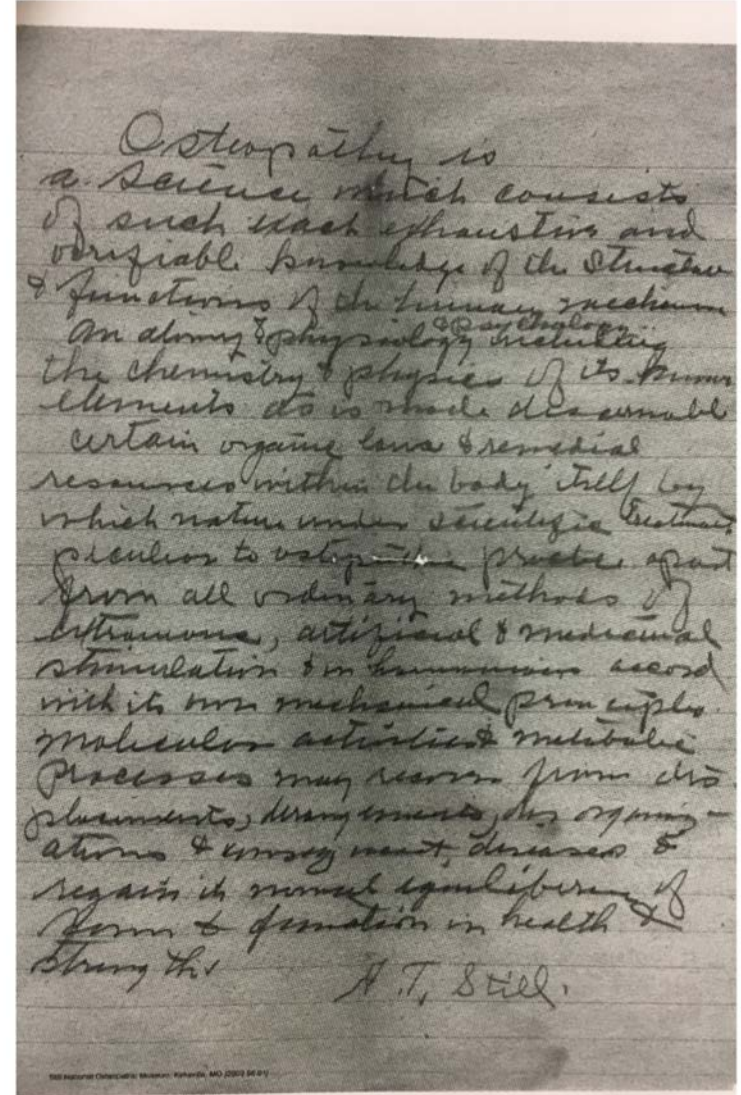 Osteopathy is
a science which consists
of such exact exhaustive and
verifiable knowledge of the structure
& functions of the human mechanism
anatomy & physiology & psychology including
the chemistry & physics of its known
elements as is made discernable
certain organic laws & remedial
resources within the body itself by
which nature under scientific treatment
peculiar to osteopathic practice apart
from all ordinary methods of
extraneous, artificial & medicinal
stimulation & in harmonious accord
with its own mechanical principles
molecular activities & metabolic
processes may recover from dis
placements, derangements, disorganiz-
ations & consequent diseases &
regain its normal equilibrium of
form & function in health &
strength.
A. T. Still.
Still National Osteopathic Museum, Kirksville, MO